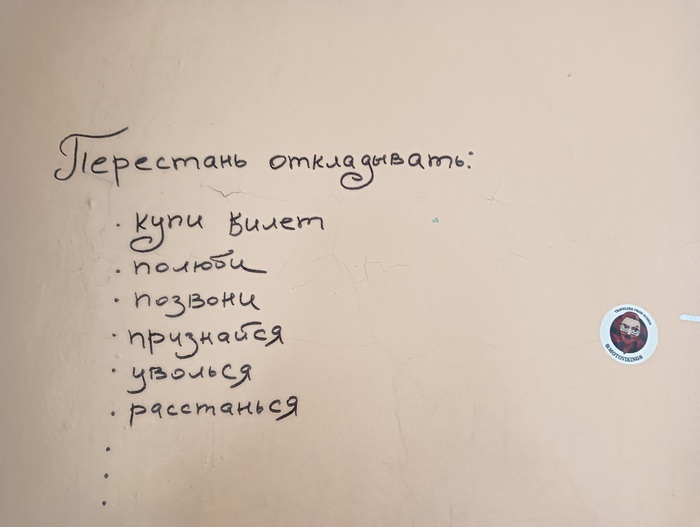 Перестань откладывать:
· купи билет
· полюби
· позвони
· признайся
· уволься
· расстанься
·
·
·
@MOTOVIKINGS